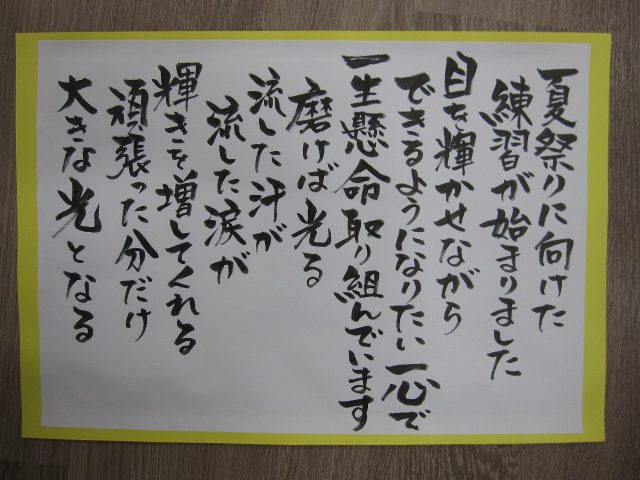 夏祭りに向けた
練習が始まりました
目を輝かせながら
できるようになりたい一心で
一生懸命取り組んでいます
磨けば光る
流した汗が
流した涙が
輝きを増してくれる
頑張った分だけ
大きな光となる